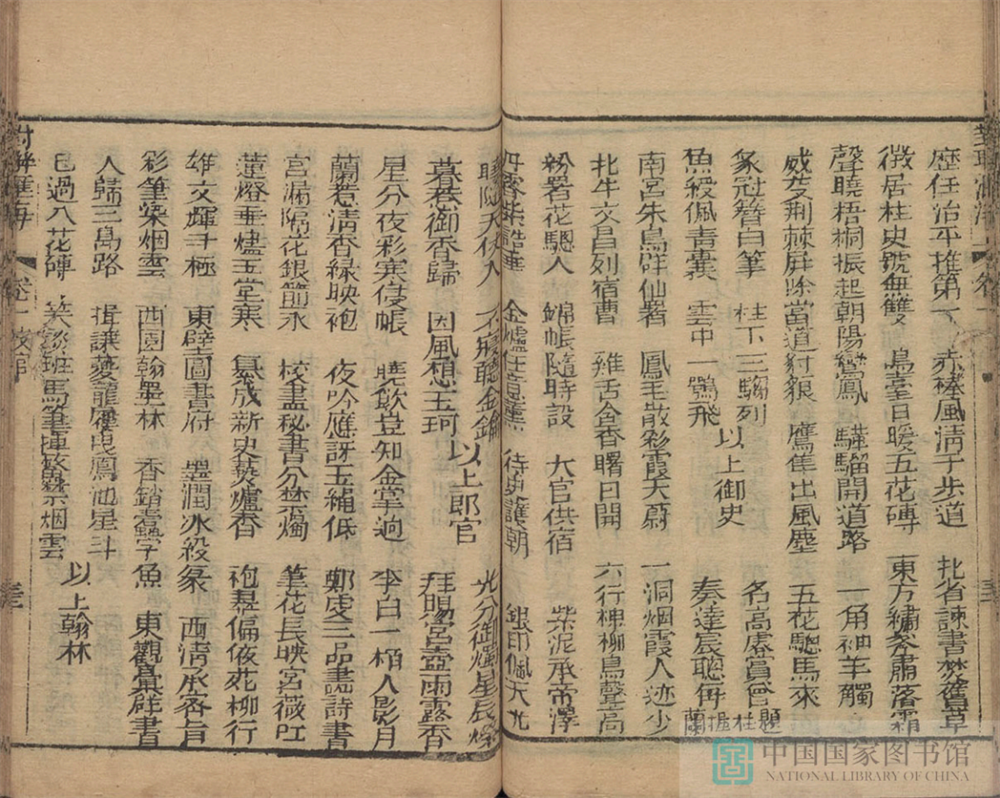 歷任治平推第一 赤棒風清子步道 北省諫書焚舊草
徵居柱史號無雙 烏臺日暖五花磚 東方繡斧肅落霜
聲曉梧桐振起朝陽鸞鳳 驊騮開道路 一角神羊觸
威芟荆棘屏除當道豺狼 鷹隼出風塵 五花驄馬來
豸冠簪白筆 柱下三騶列 以上御史 名高處賞會題柱
魚袋佩青囊 雲中一鶚飛 奏達宸聰每握蘭
南宮朱鳥群仙署 鳳毛散彩霞天蔚 一洞烟霞人迹少
北斗文昌列宿曹 雞舌含香曙日開 六行神柳鳥聲高
粉署花驄人 錦帳隨時設 大官供宿 紫泥承帝澤
丹霄 金爐任意熏 待史護朝 銀印佩天光
聯隨天仗入 不寢聽金鑰 光分御燭星辰燦
暮惹御香歸 因風想玉珂 以上郎官 拜賜宮壺雨露香
星分夜彩寒侵帳 曉飲豈知金掌迥 李白一桮人影月
蘭惹清香綠映袍 夜吟應訝玉繩低 鄭虔三品畫詩書
宮漏隔花銀箭永 校盡秘書分禁燭 筆花長映宮薇紅
蓮燈垂燼玉堂寒 纂成新史爇爐香 袍羣偏依苑柳行
雄文輝斗極 東壁圖書府 墨潤冰綃篆 西清承密旨
彩筆染烟雲 西園翰墨林 香銷蠹字魚 東觀集群書
人歸三島路 揖讓夔龍履曳鳳池星斗
已過八花磚 笑談班馬筆揮 禁烟雲 以上翰林
卷一 文官
中国国家图书馆
NATIONAL LIBRARY OF CHINA